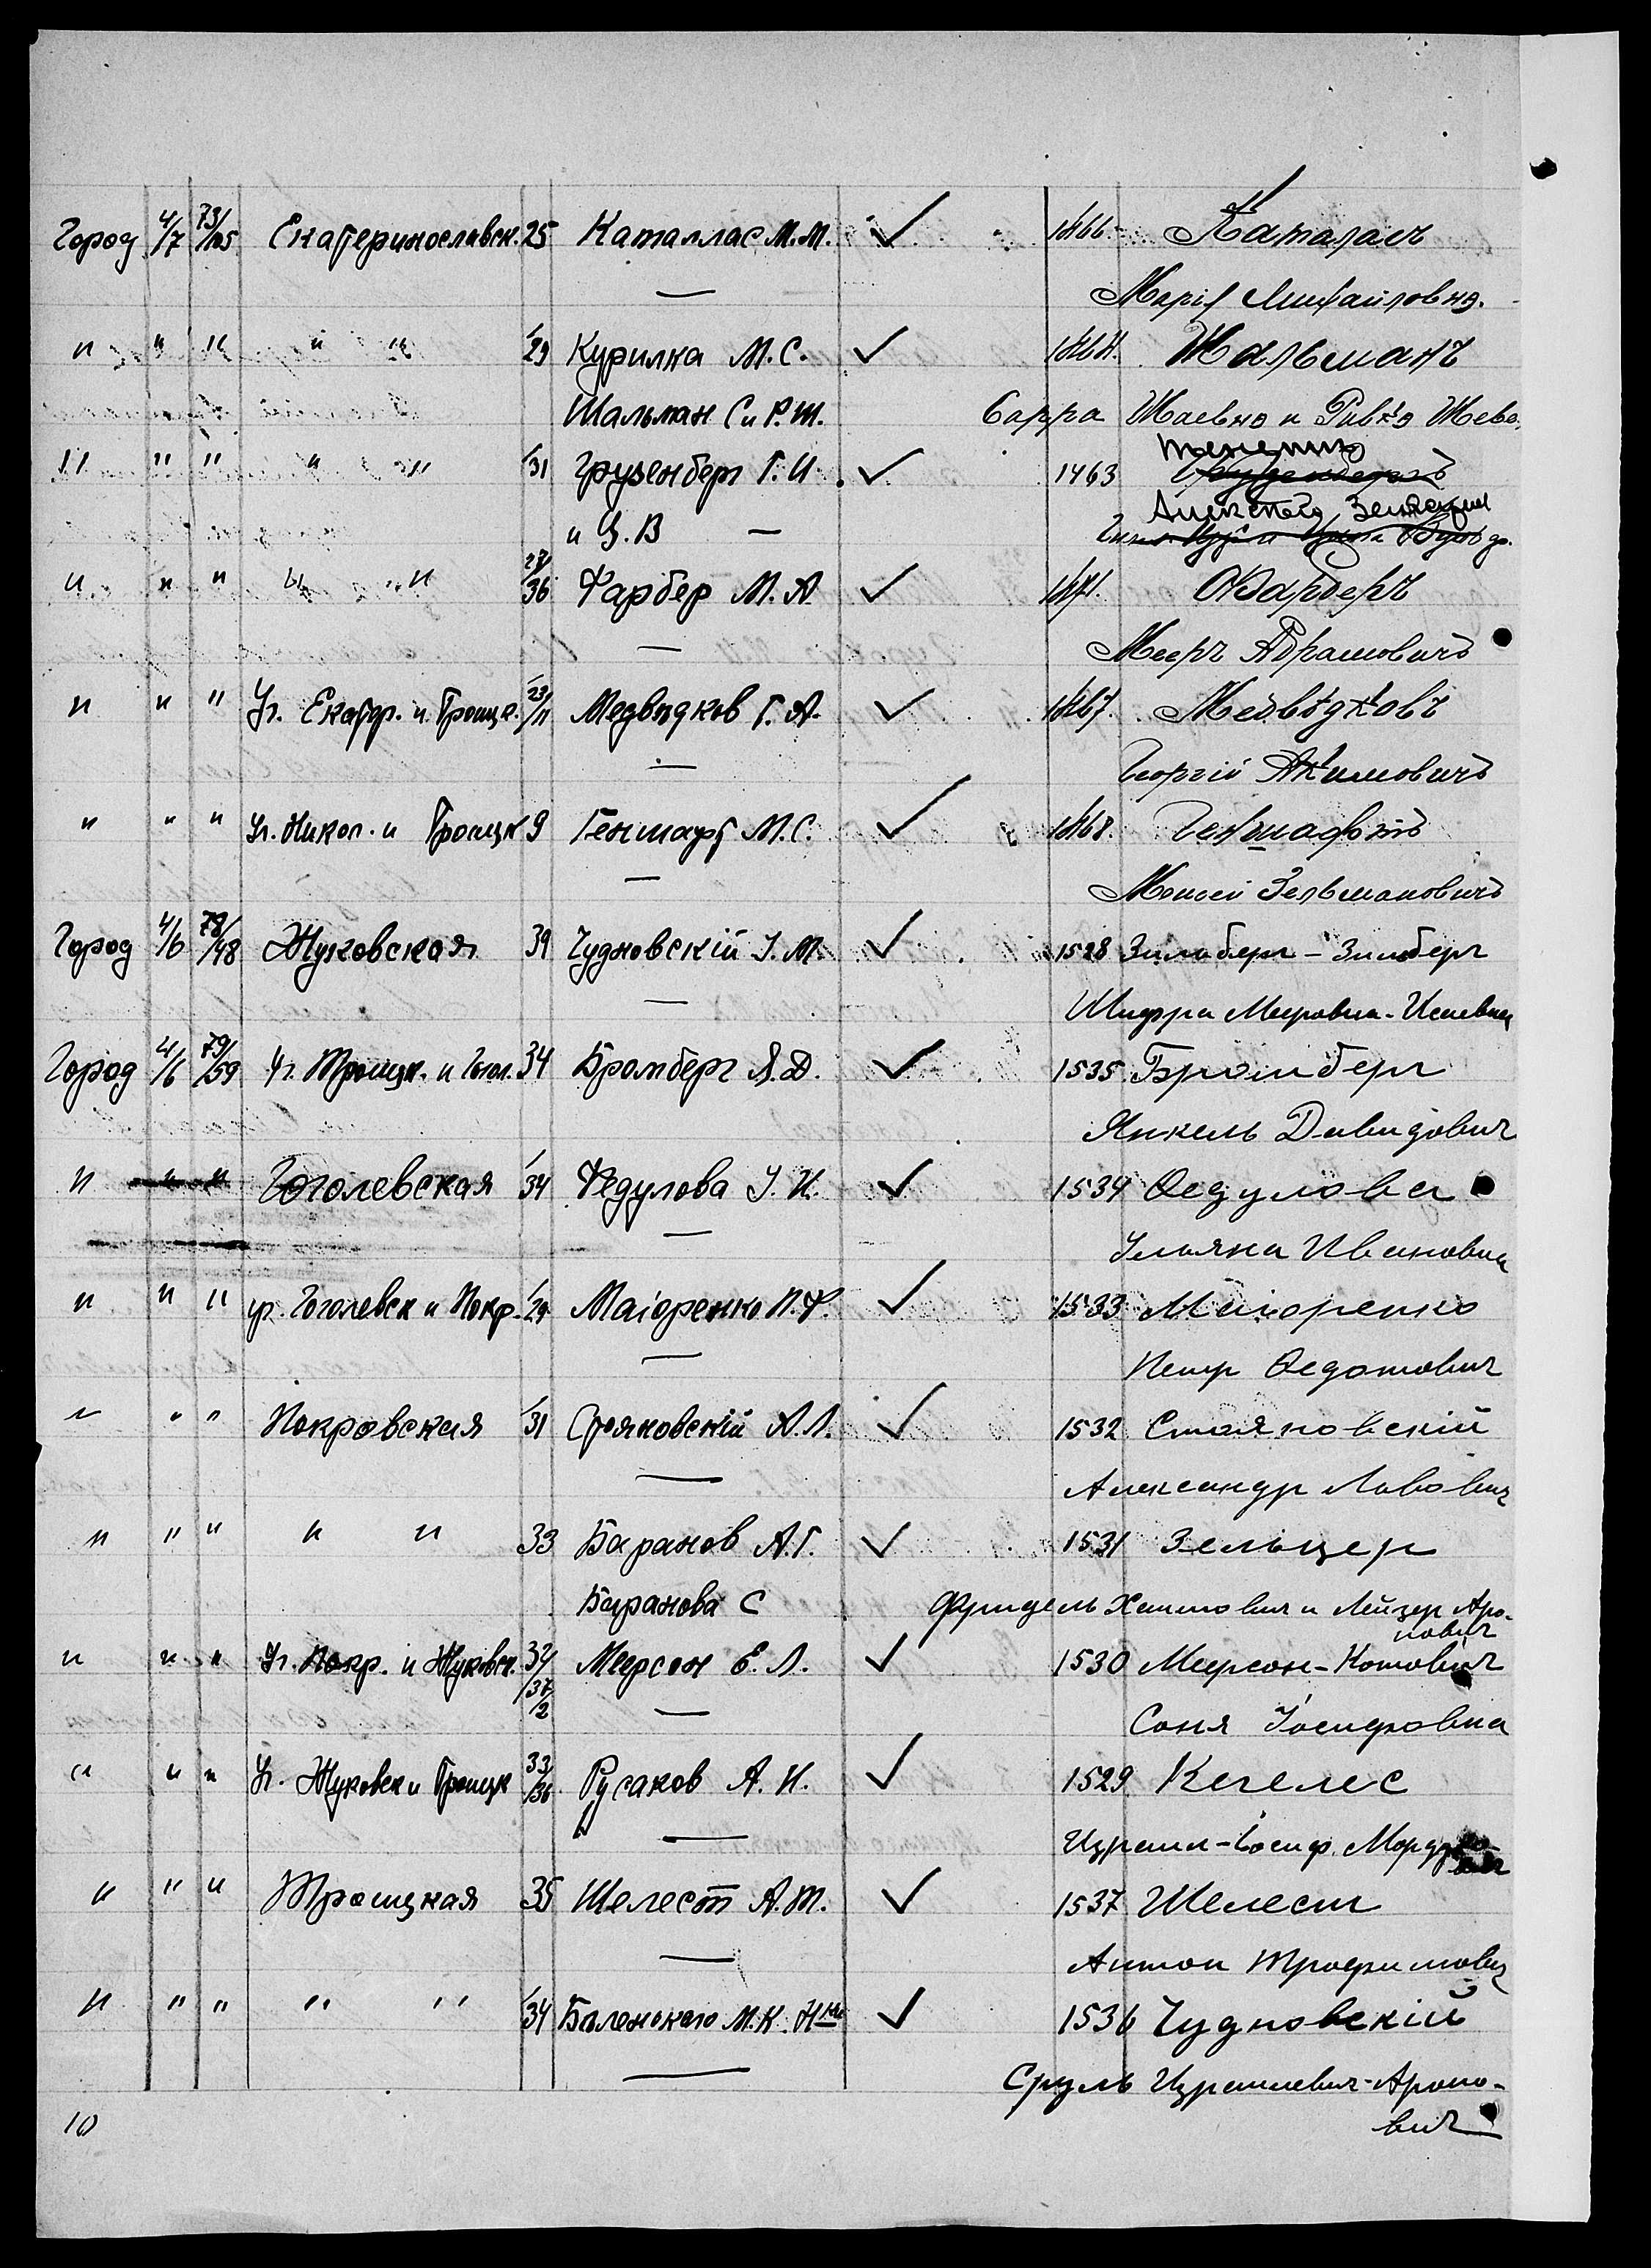 Город 4/7 73/105 Екатеринославск. 25 Каталлас М.М. ✓ 1466 Каталасъ
— Марія Михайловна.
" " " " " 29 Курилка М.С. ✓ Шальманъ
Шальман С и Р.Ш. Сарра Шаевна и Ривка Шево.
" " " " " 31 Грузенберг Г.И. ✓ 1463
и Ц.В —
" " " " " 27/36 Фарбер М.А. ✓ Фарберъ
— Мееръ Абрамовичъ
" " " Уг. Екатер. и Троицк. 23/11 Медвѣдков Г.А. ✓ 1467. Медвѣдковъ
— Георгій Акимовичъ
" " " Уг. Никол. и Троицк 9 Геншафт М.С. ✓ 1468. Геншафтъ
— Моисей Зельмановичъ
Город 4/6 78/48 Жуковская 39 Чудновскій І.М. ✓ 1528 Зильберг - Зимберг
— Шифра Меровна - Исаевна
Город 4/6 79/59 Уг. Троицк. и Гогол. 34 Бромберг Я.Д. ✓ 1535 Бромберг
Янкель Давидович
" " " Гоголевская 34 Федулова У.И. ✓ 1534 Федулова
— Ульяна Ивановна
" " " уг. Гоголевск и Покр. 29 Маіоренко П.Ф. ✓ 1533 Маіоренко
— Петр Федотович
" " " Покровская 31 Стояновскій А.Л. ✓ 1532 Стояновскій
— Александр Львович
" " " " " 33 Баранов А.Г. ✓ 1531 Зельцер
Баранова С Фридель Хаимович и Лейзер Аро-
нович
" " " Уг. Покр. и Жуковск. 34/37/2 Меерсон Е.Л. ✓ 1530 Меерсон-Котович
— Соня Іосифовна
" " " Уг. Жуковск и Троицк 33/36 Русаков А.И. ✓ 1529 Кегелес
— Израил-Іосиф.
" " " Троицкая 35 Шелест А.Т. ✓ 1537 Шелест
— Антон Трофимович
" " " " " 34 Бѣленькаго М.К. Н-ки ✓ 1536 Чудновскій
— Сруль Израилевич-Ароно-
вич
10